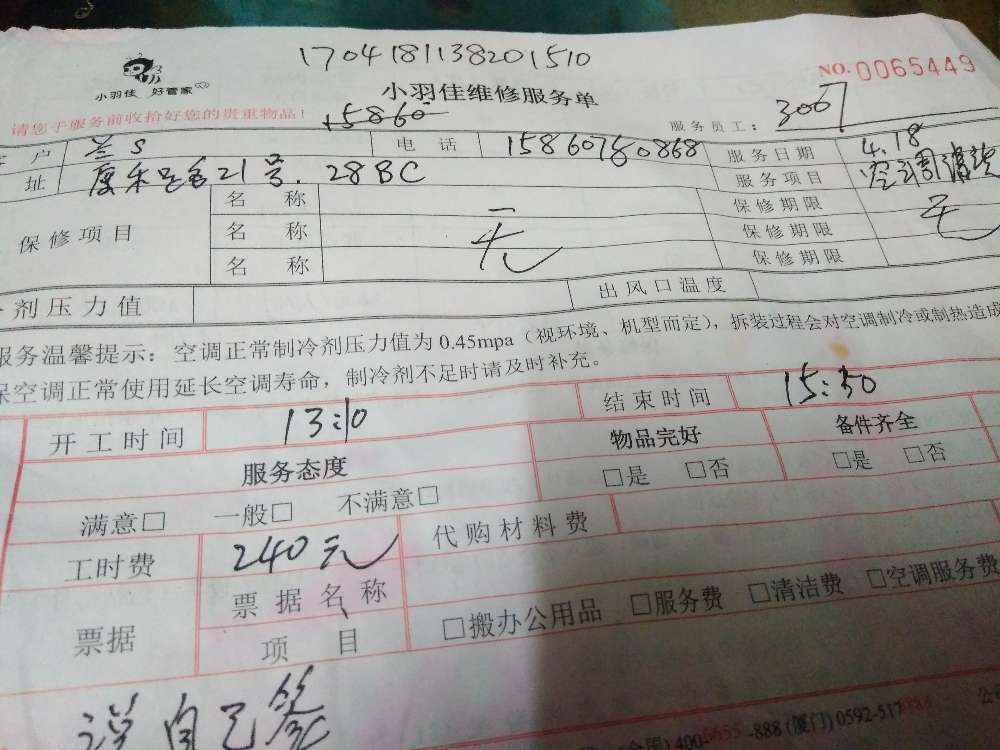 1704181138201510
小羽佳 好管家
NO.0065449
小羽佳维修服务单
请您于服务前收拾好您的贵重物品！
+5860
服务员工： 3007
户 兰S 电话 15860780868 服务日期 4.18
址 21号. 28BC 服务项目 空调清洗
保修项目 名称 无 保修期限 无
名称 保修期限
名称 保修期限
剂压力值 出风口温度
服务温馨提示：空调正常制冷剂压力值为0.45mpa（视环境、机型而定），拆装过程会对空调制冷或制热造成
保空调正常使用延长空调寿命，制冷剂不足时请及时补充。
开工时间 13:10 结束时间 15:30
服务态度 物品完好 备件齐全
满意□ 一般□ 不满意□ □是 □否 □是 □否
工时费 240元 代购材料费
票据 票据名称 □搬办公用品 □服务费 □清洁费 □空调服务费
项目
自己签
400- -888 (厦门) 0592-517